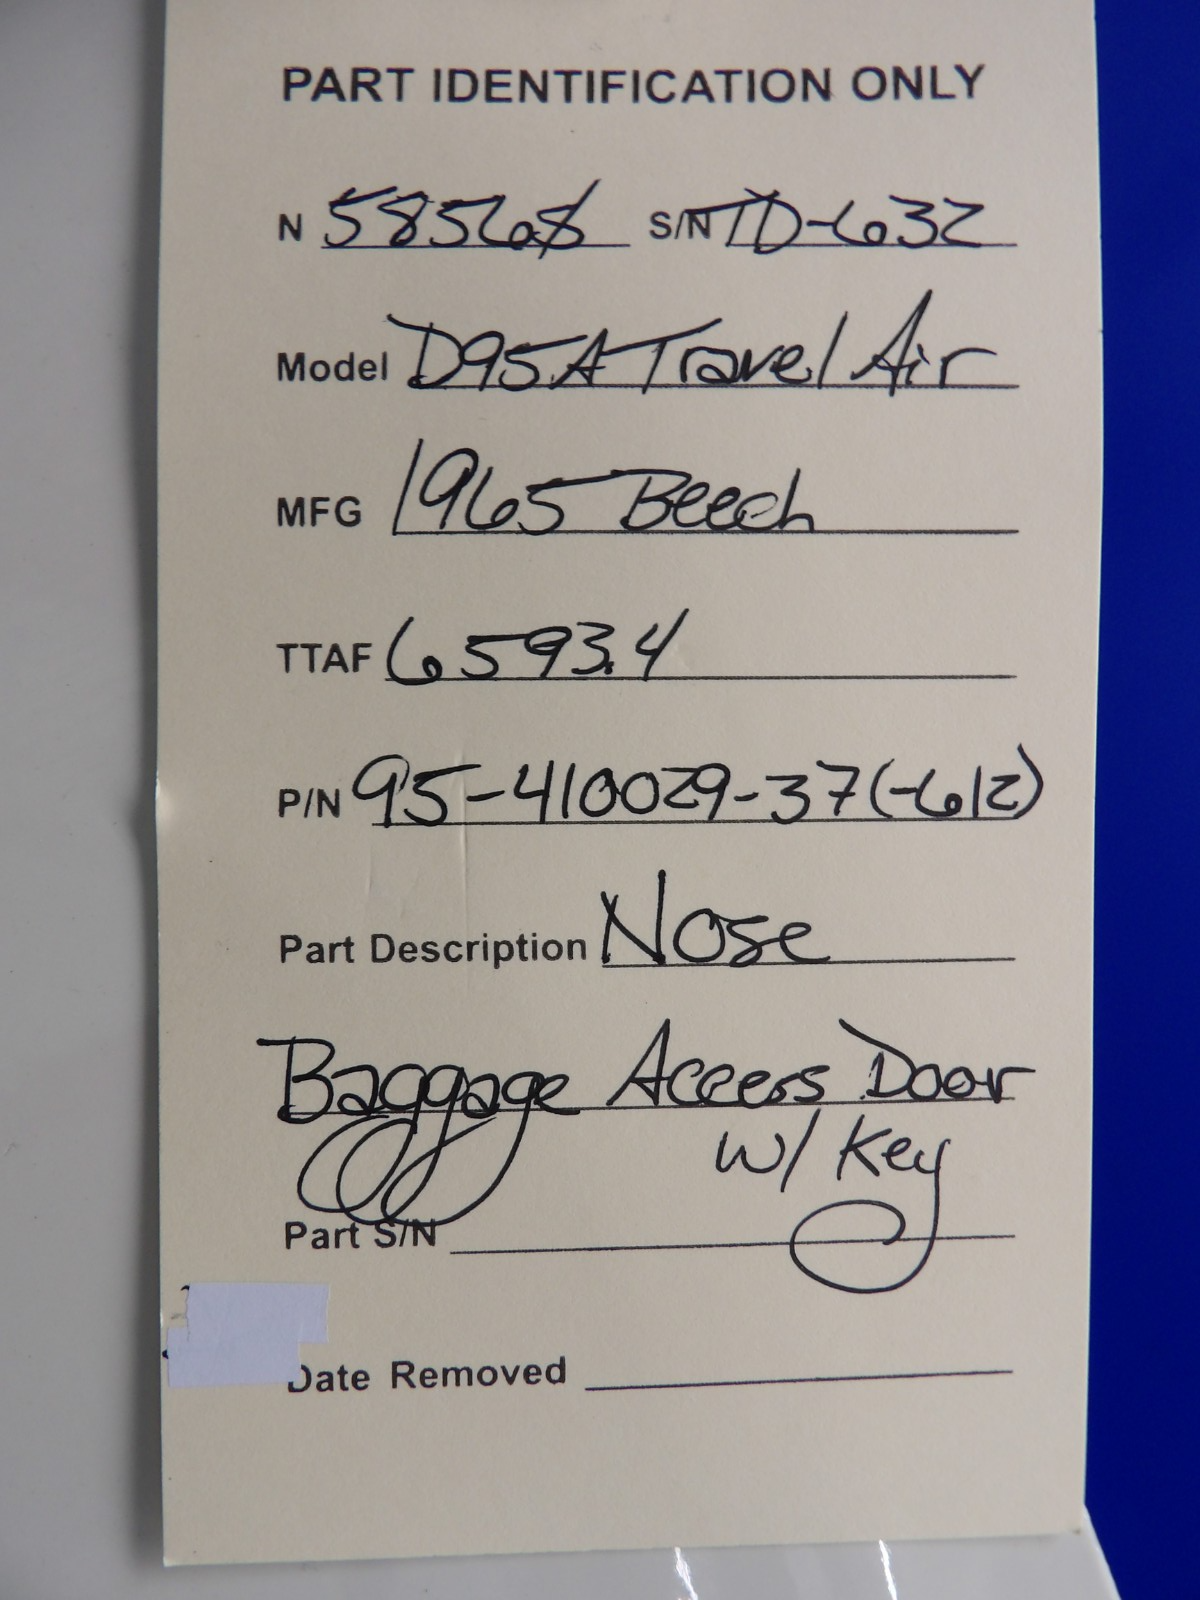 PART IDENTIFICATION ONLY
N 5856S S/N TD-632
Model D95A Travel Air
MFG 1965 Beech
TTAF 6593.4
P/N 95-410029-37(-612)
Part Description Nose
Baggage Access Door
w/ Key
Part S/N
Date Removed